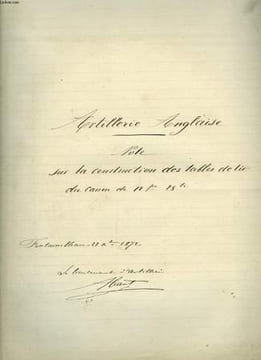 Artillerie Anglaise
Note
sur la construction des tables de tir
du canon de 12
1872
Le lieutenant d'Artillerie